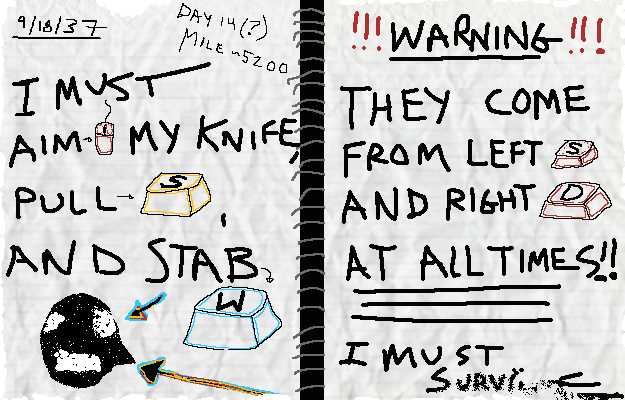 9/18/37
DAY 14(?)
MILE ~5200
I MUST
AIM MY KNIFE,
PULL S,
AND STAB
W
!!! WARNING !!!
THEY COME
FROM LEFT S
AND RIGHT D
AT ALL TIMES!!
I MUST